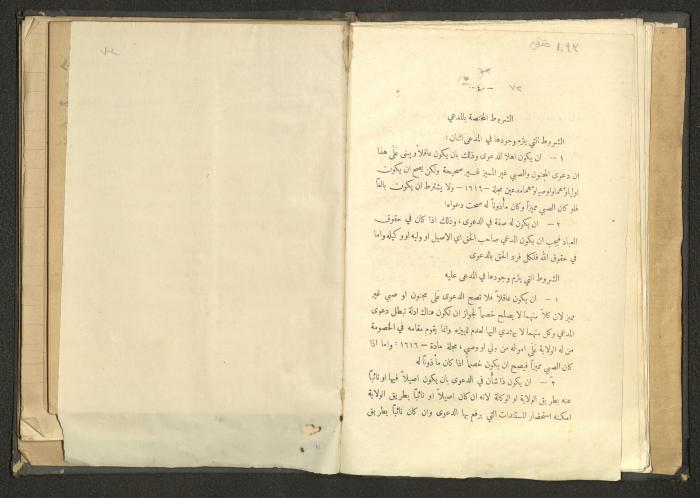 ١٠٩٣
٧٢
الشروط المختصة بالمدعي
الشروط التي يلزم وجودها في المدعى اثنان :
١ — ان يكون اهلا للدعوى وذلك بان يكون عاقلاً وينبى عَلَى هذا
ان دعوى المجنون والصبي غير المميز غير صحيحة ولكن يصح ان يكون
اولياؤهما واوصياؤهما مدعين مجلة — ١٦١٦ — ولا يشترط ان يكون بالغاً
فلو كان الصبي مميزاً وكان مأذوناً له صحت دعواه
٢ — ان يكون له صفة في الدعوى ، وذلك اذا كان في حقوق
العباد فيجب ان يكون المدعي صاحب الحق اي الاصيل او وليه او وكيله واما
في حقوق الله فلكل فرد الحق بالدعوى
الشروط التي يلزم وجودها في المدعى عليه
١ — ان يكون عاقلاً فلا تصح الدعوى عَلَى مجنون او صبي غير
مميز لان كلاً منهما لا يصلح خصماً لجواز ان تكون هناك ادلة تبطل دعوى
المدعي وكل منهما لا يهتدي اليها لعدم تمييزه وانما يقوم مقامه في الخصومة
من له الولاية عَلَى امواله من ولي او وصي ، مجلة مادة — ١٦١٦ ؛ واما اذا
كان الصبي مميزاً فيصح ان يكون خصماً اذا كان مأذوناً له
٢ — ان يكون ذا شأن في الدعوى بان يكون اصيلاً فيها او نائباً
عنه بطريق الولاية او الوكالة لانه ان كان اصيلاً او نائباً بطريق الولاية
امكنه استحضار المستندات التي يرفع بها الدعوى وان كان نائباً بطريق